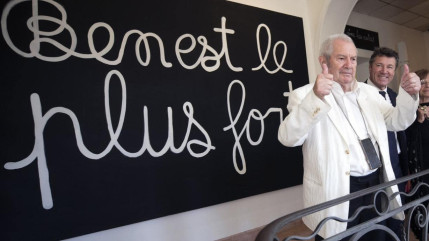 Ben est le
plus fort